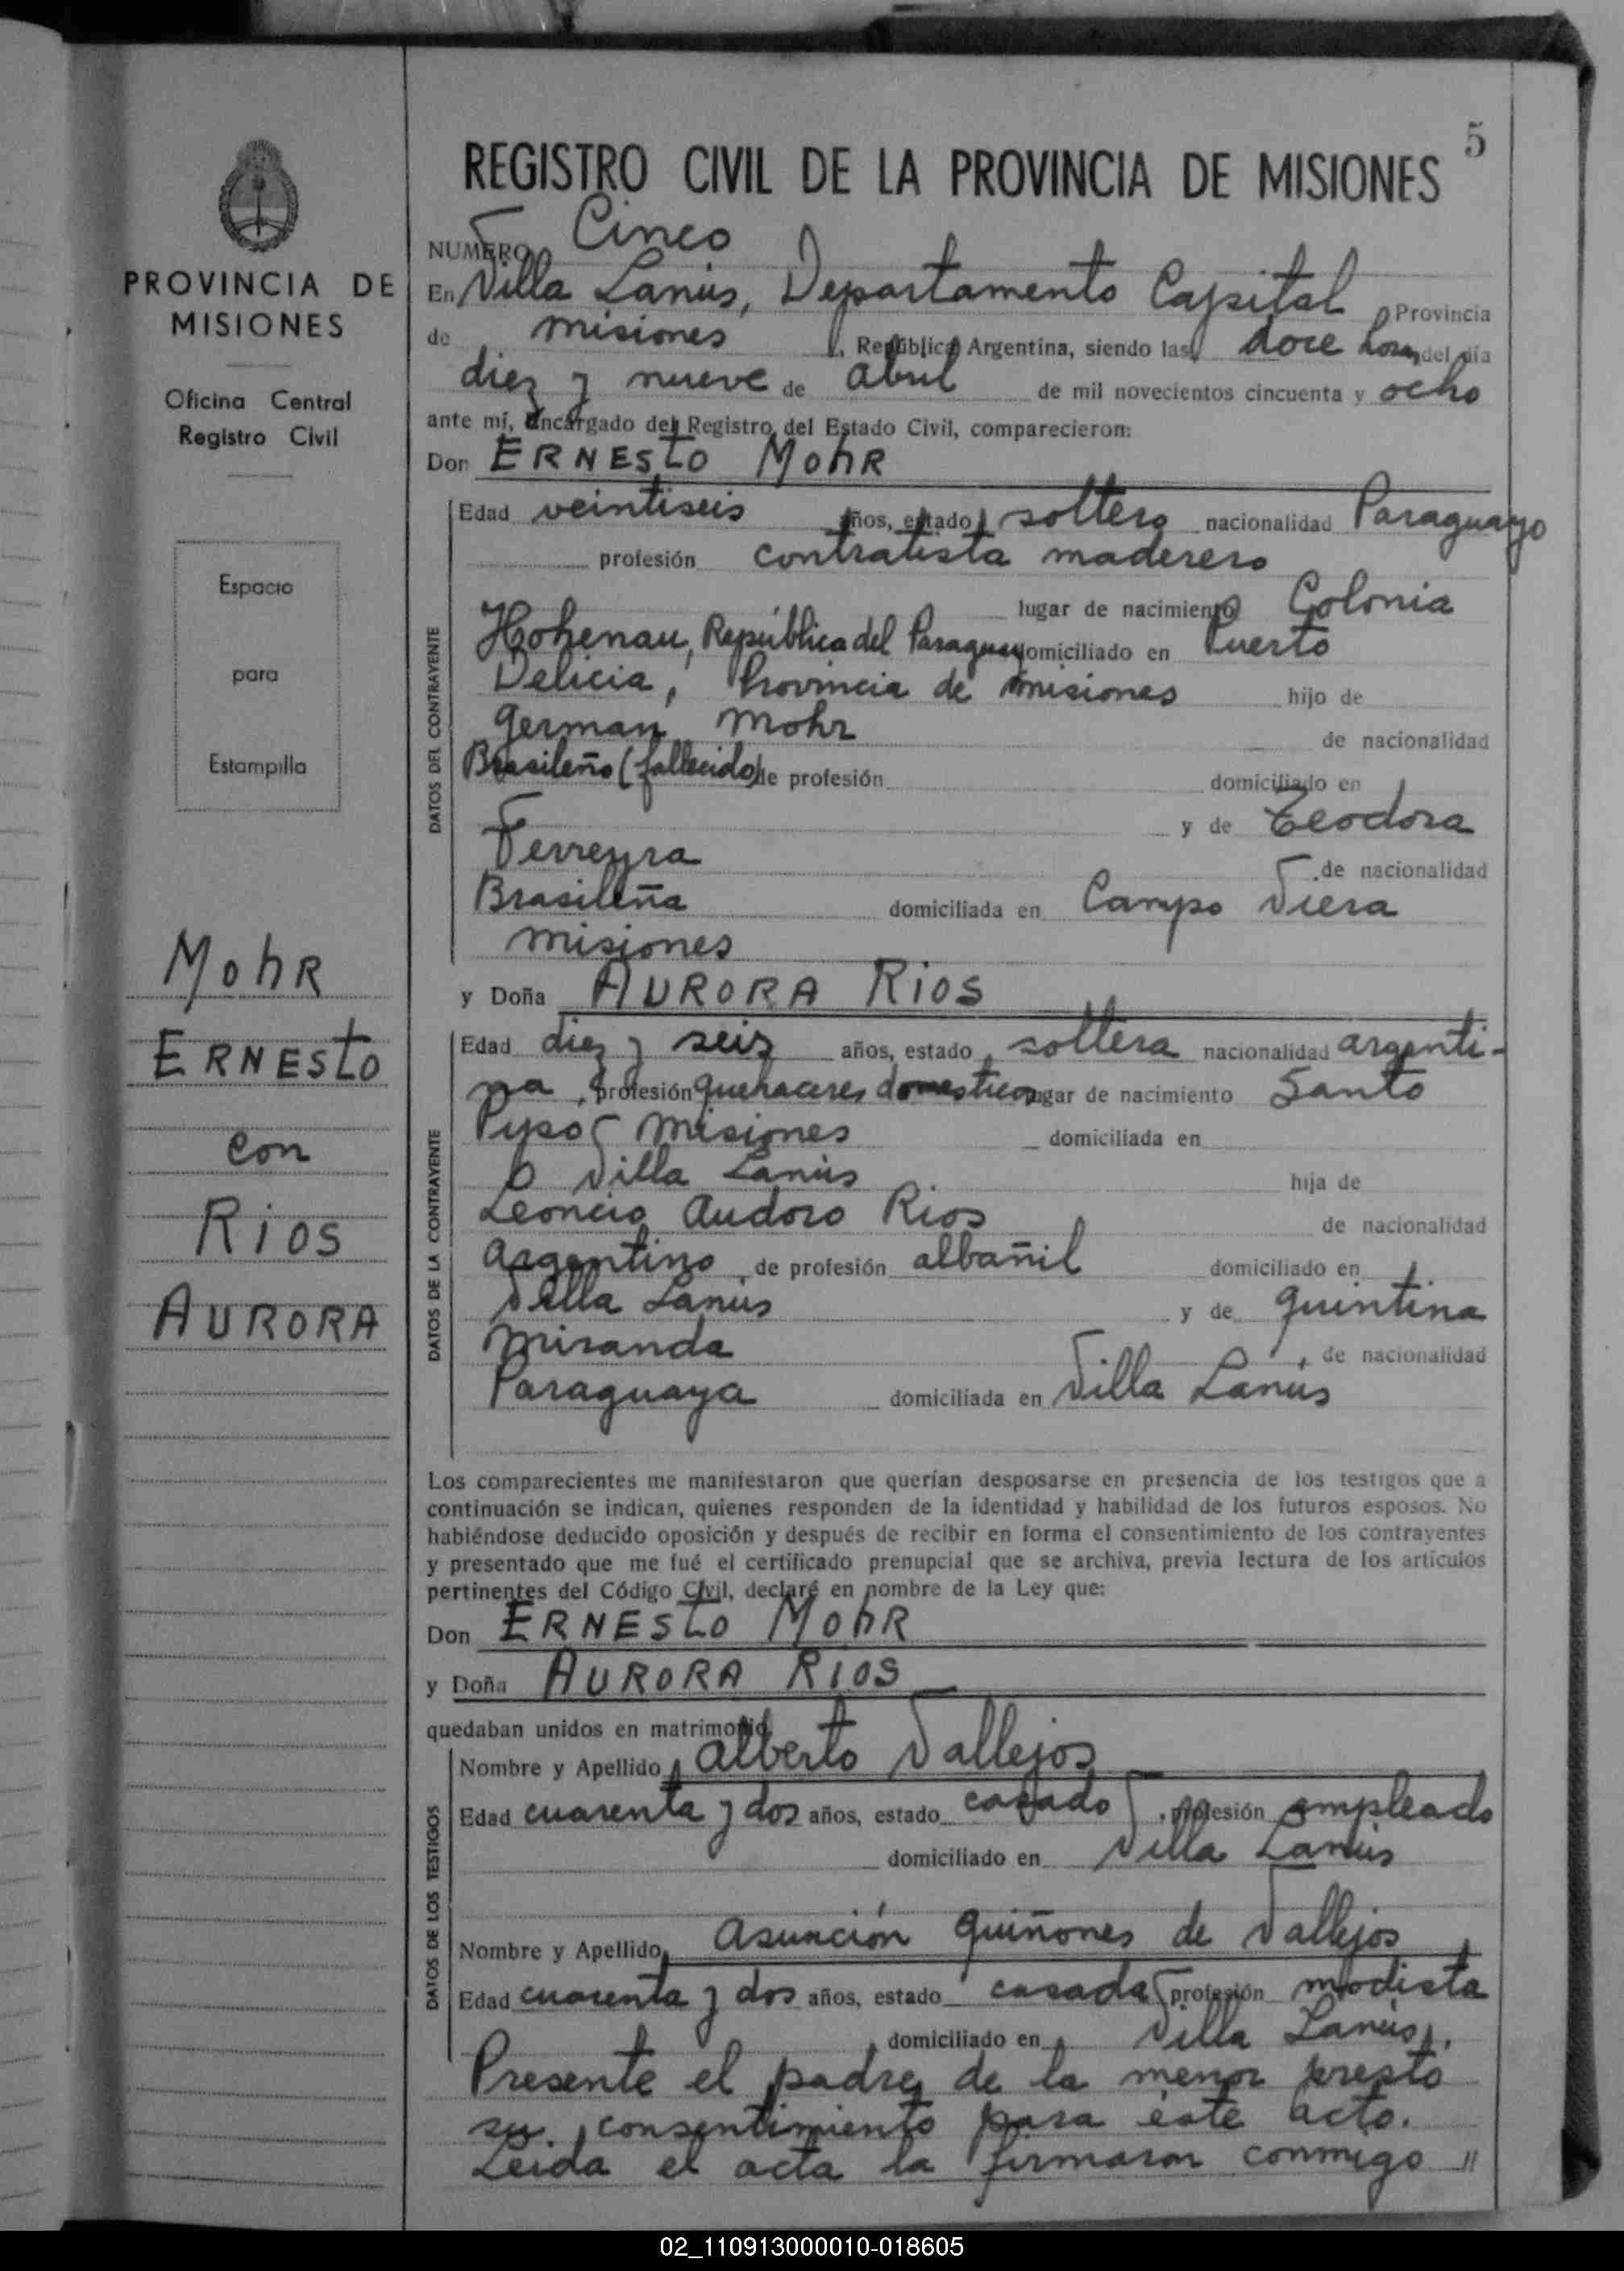 5
REGISTRO CIVIL DE LA PROVINCIA DE MISIONES
NUMERO Cinco
En Villa Lanús, Departamento Capital, Provincia
de misiones, República Argentina, siendo las doce horas del día
diez y nueve de abril de mil novecientos cincuenta y ocho
ante mí, Encargado del Registro del Estado Civil, comparecieron:
Don ERNESTO MOHR
Edad veintiseis años, estado soltero nacionalidad Paraguayo
profesión contratista maderero
lugar de nacimiento Colonia
Hohenau, República del Paraguay domiciliado en Puerto
Delicia, Provincia de misiones hijo de
German Mohr de nacionalidad
Brasileño (fallecido) de profesión domiciliado en
y de Teodora
Ferreyra de nacionalidad
Brasileña domiciliada en Campo Viera
misiones
y Doña AURORA RIOS
Edad diez y seis años, estado soltera nacionalidad argenti-
na, profesión quehaceres domesticos lugar de nacimiento Santo
Pipo misiones domiciliada en
Villa Lanús hija de
Leoncio Audoro Rios de nacionalidad
argentino, de profesión albañil domiciliado en
Villa Lanús y de Quintina
Miranda, de nacionalidad
Paraguaya domiciliada en Villa Lanús
Los comparecientes me manifestaron que querían desposarse en presencia de los testigos que a
continuación se indican, quienes responden de la identidad y habilidad de los futuros esposos. No
habiéndose deducido oposición y después de recibir en forma el consentimiento de los contrayentes
y presentado que me fué el certificado prenupcial que se archiva, previa lectura de los artículos
pertinentes del Código Civil, declaré en nombre de la Ley que:
Don ERNESTO MOHR
y Doña AURORA RIOS
quedaban unidos en matrimonio.
Nombre y Apellido Alberto Vallejos
Edad cuarenta y dos años, estado casado, profesión empleado
domiciliado en Villa Lanús
Nombre y Apellido Asunción Quiñones de Vallejos
Edad cuarenta y dos años, estado casada profesión modista
domiciliado en Villa Lanús.
Presente el padre de la menor prestó
su consentimiento para éste acto.
Leida el acta la firmaron conmigo //
DATOS DEL CONTRAYENTE
DATOS DE LA CONTRAYENTE
DATOS DE LOS TESTIGOS
PROVINCIA DE
MISIONES
Oficina Central
Registro Civil
Espacio
para
Estampilla
MOHR
ERNESTO
con
RIOS
AURORA
02_110913000010-018605